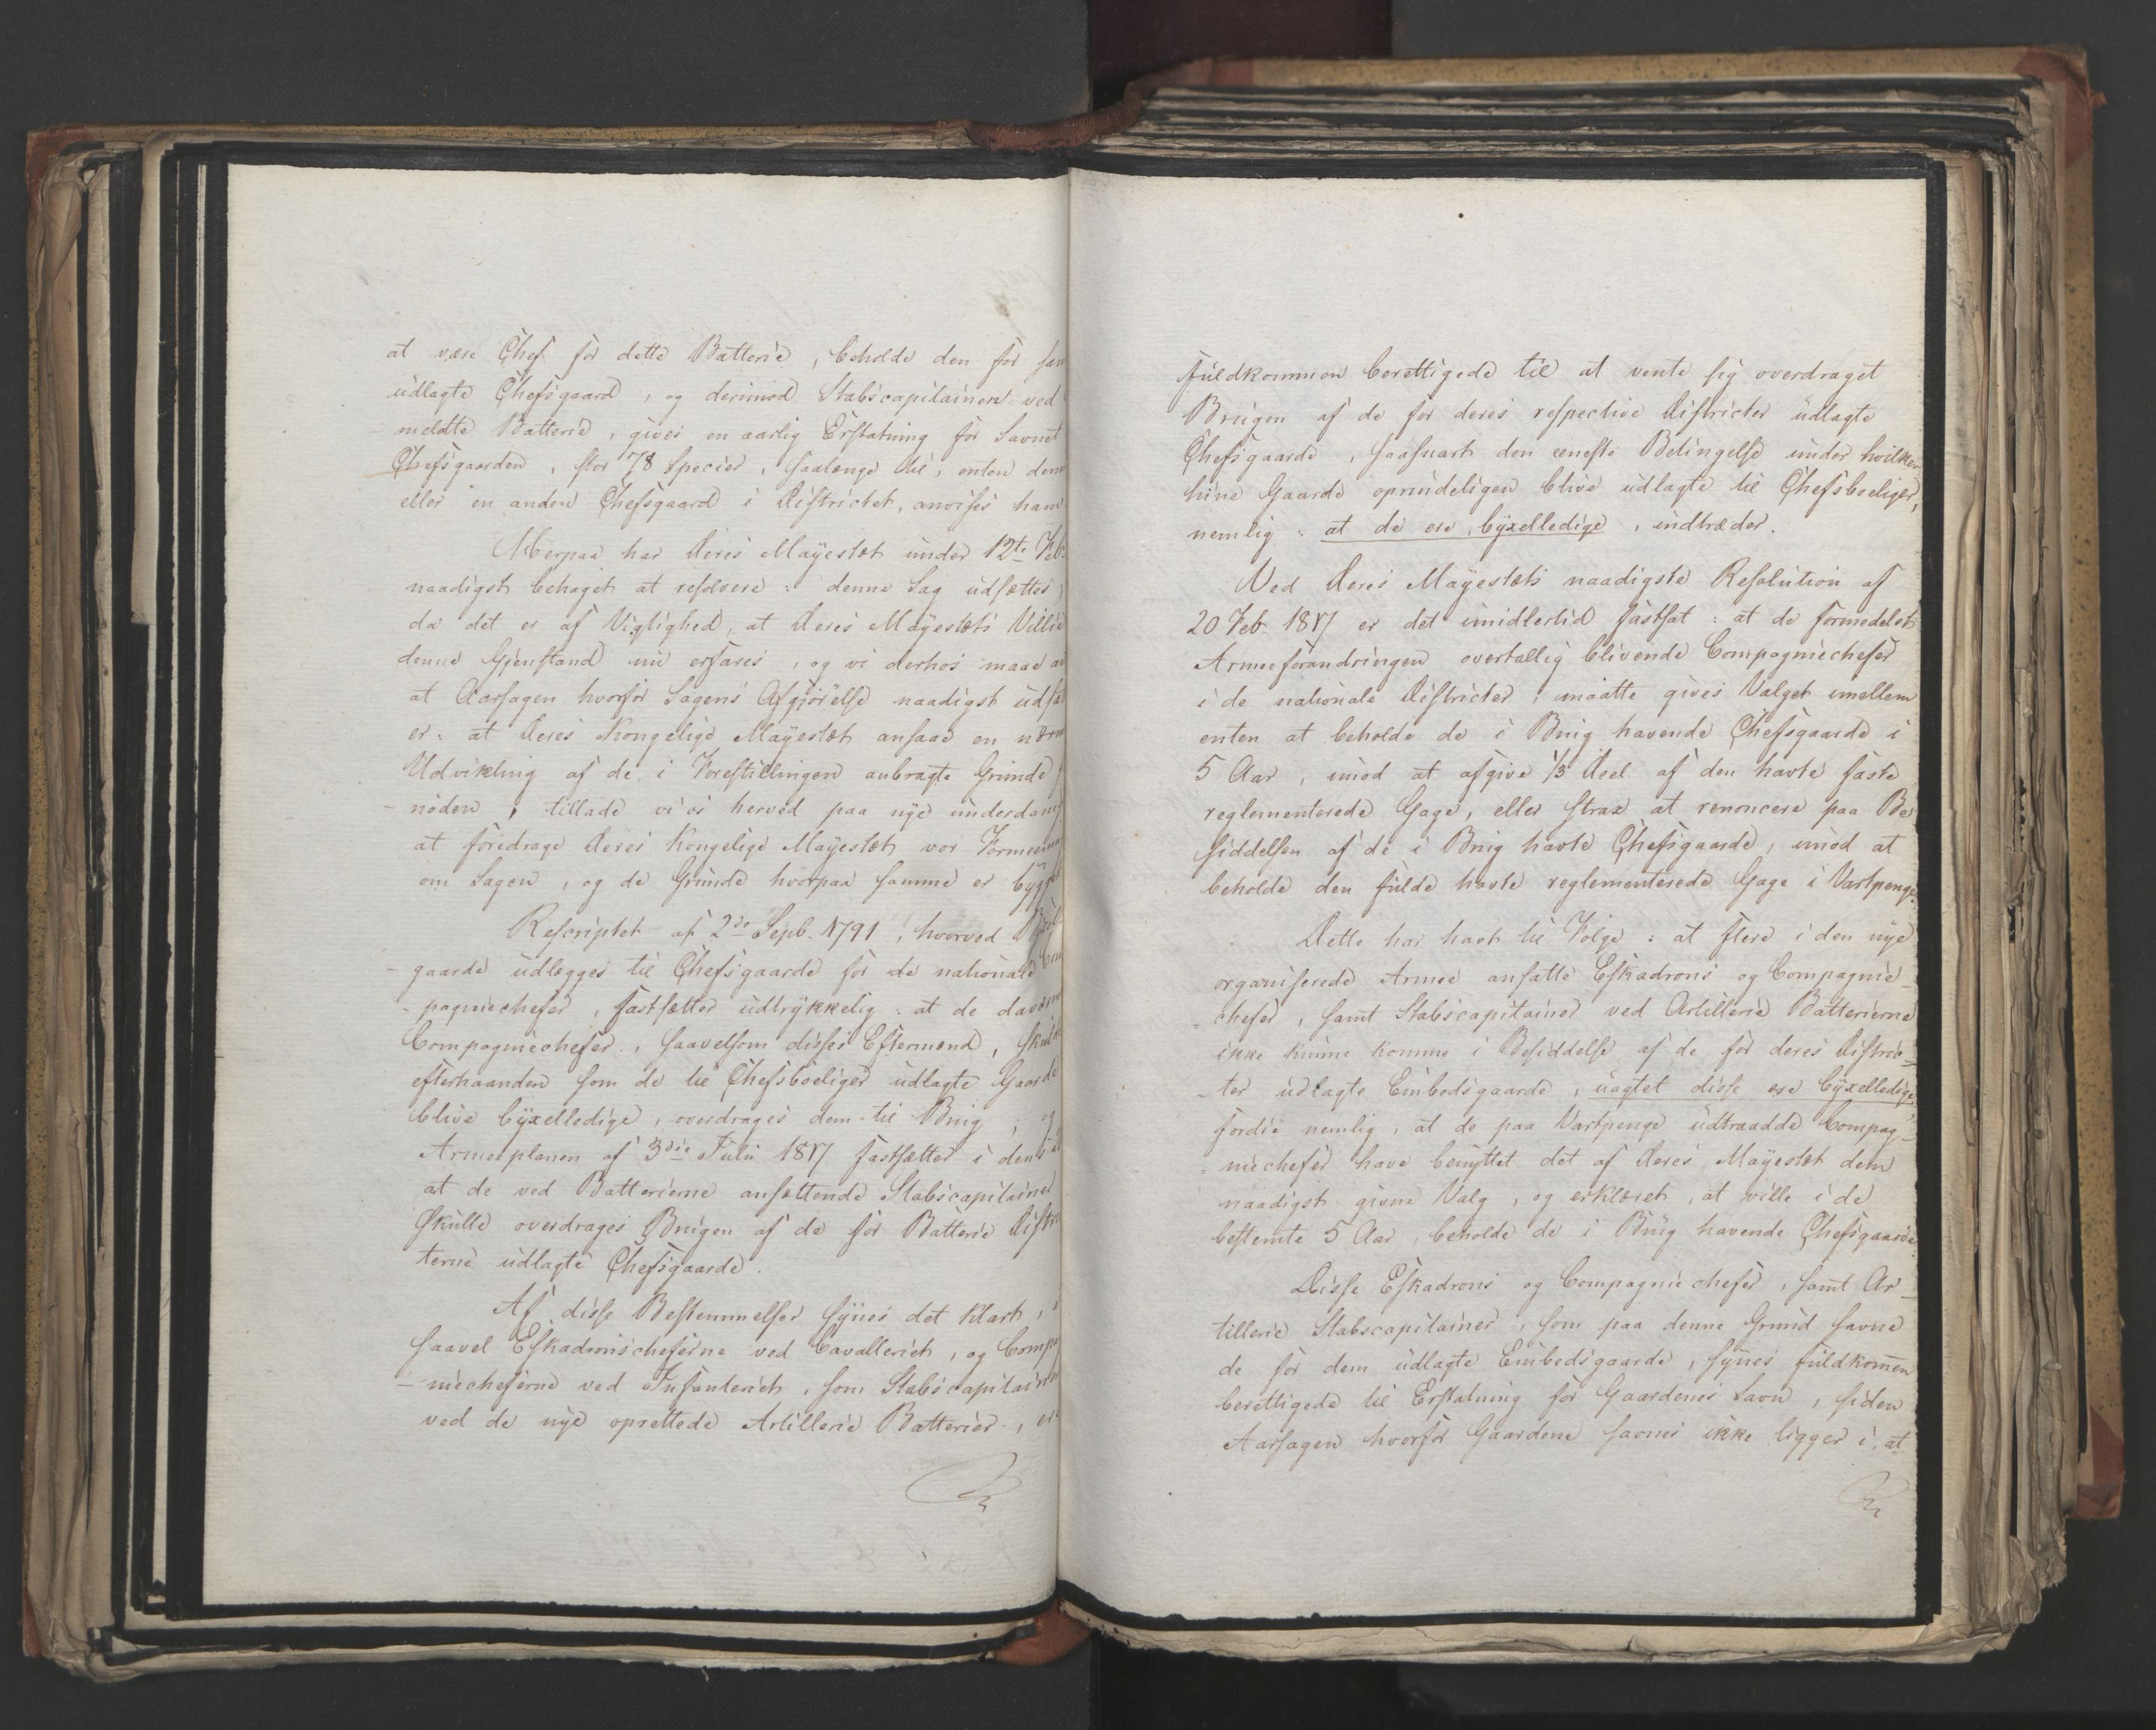 at være Chef for dette Batterie, beholde den for
udlagte Chefsgaard, og derimod Stabscapitainen ved
meldte Batterie, gives en aarlig Erstatning for Savnet
Chefsgaarden, stor 78 Species, saalænge til, enten
eller en anden Chefsgaard i Districtet, anvises ham
Herpaa har Deres Mayestæt under 12te Feb.
naadigst behaget at resolvere: denne Sag udsættes;
da det er af Vigtighed, at Deres Mayestæts Villie
denne Gjenstand nu erfares, og vi derhos maae
at Aarsagen hvorfor Sagens Afgjörelse naadigst
er: at Deres Kongelige Mayestæt ansaae en
Udvikling af de i Forestillingen anbragte Grunde
nöden, tillade vi os herved paa nye
at foredrage Deres Kongelige Mayestæt vor
om Sagen, og de Grunde hvorpaa samme er
Rescriptet af 2de Sepb. 1791, hvorved
gaarde udlægges til Chefsgaarde for de nationale
pagniechefer, fastsætter udtrykkelig: at de
Compagniechefer, saavelsom disses Eftermænd,
efterhaanden som de til Chefsboeliger udlagte Gaarde
blive byxelledige, overdrages dem til Brug; og
Armeeplanen af 3die Julii 1817 fastsætter i dens
at de ved Batterierne ansættende Stabscapitainer
skulle overdrages Brugen af de for Batterie
terne udlagte Chefsgaarde.
Af disse Bestemmelser synes det klart,
saavel Eskadronscheferne ved Cavalleriet, og
niecheferne ved Infanteriet, som Stabscapitainerne
ved de nye oprettede Artillerie Batterier,
fuldkommen berettigede til at vente sig overdraget
Brugen af de for deres respective Districter udlagte
Chefsgaarde, saasnart den eneste Betingelse under hvilken
hine Gaarde oprindeligen blive udlagte til Chefsboeliger,
nemlig: at de ere byxelledige, indtræder.
Ved Deres Mayestæts naadigste Resolution af
20 Feb. 1817 er det imidlertid fastsat: at de formedelst
Armeeforandringen overtallig blivende Compagniechefer
i de nationale Districter, maatte gives Valget imellem
enten at beholde de i Brug havende Chefsgaarde i
5 Aar, imod at afgive 1/3 Deel af den havte faste
reglementerede Gage, eller strax at renoncere paa Be
siddelsen af de i Brug havte Chefsgaarde, imod at
beholde den fulde havte reglementerede Gage i Vartpenge.
Dette har havt til Fölge: at flere i den nye
organiserede Armee ansatte Eskadrons og Compagnie
chefer, samt Stabscapitainer ved Artillerie Batterierne
ikke kunne komme i Besiddelse af de for deres Distric
ter udlagte Embedsgaarde, uagtet disse ere byxelledige,
fordie nemlig, at de paa Vartpenge udtraadde Compag
niechefer have benyttet det af Deres Mayestæt dem
naadigst givne Valg, og erklæret, at ville i de
bestemte 5 Aar, beholde de i Brug havende Chefsgaarde.
Disse Eskadrons og Compagnie chefer, samt Ar
tillerie Stabscapitainer, som paa denne Grund savne
de for dem udlagte Embedsgaarde, synes fuldkommen
berettigede til Erstatning for Gaardenes Savn, siden
Aarsagen hvorfor Gaardene savnes ikke ligger i, at